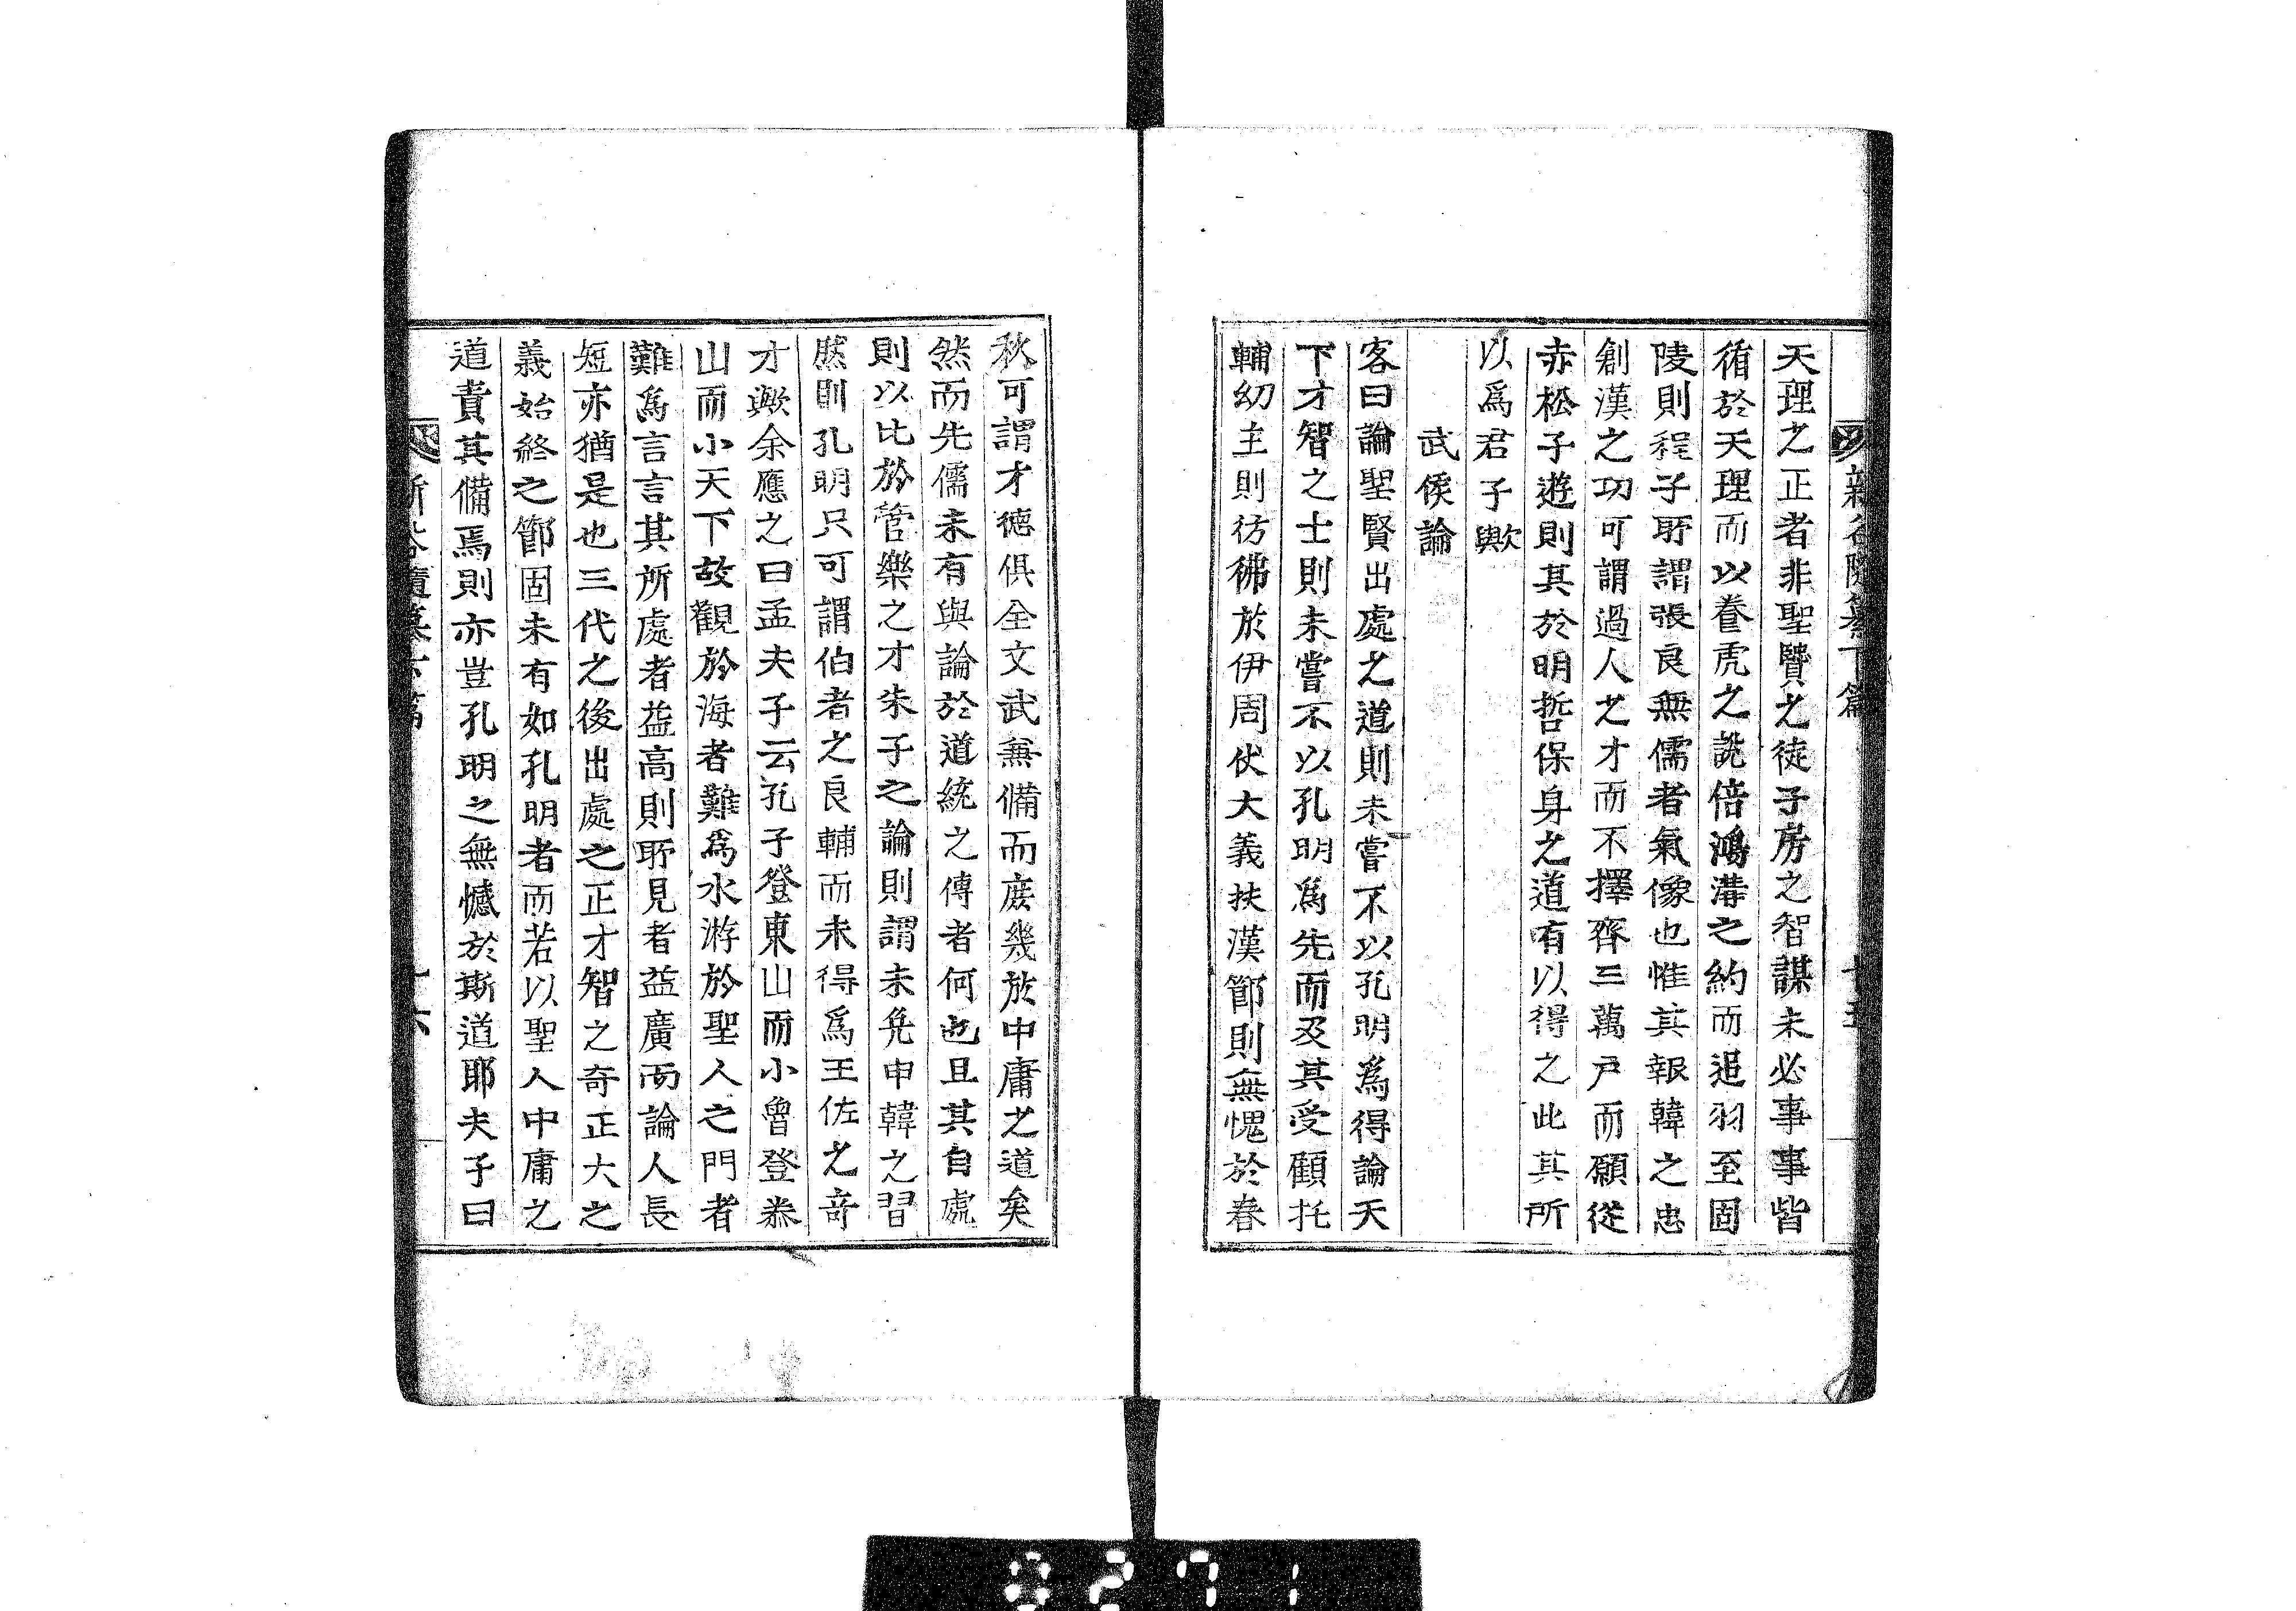 天理之正者非聖賢之徒子房之智謀未必事事皆
循於天理而以養虎之說倍鴻溝之約而追羽至固
陵則程子所謂張良無儒者氣像也惟其報韓之忠
創漢之功可謂過人之才而不擇齊三萬戶而願從
赤松子遊則其於明哲保身之道有以得之此其所
以爲君子歟
武侯論
客曰論聖賢出處之道則未嘗不以孔明爲得論天
下才智之士則未嘗不以孔明爲先而及其受顧托
輔幼主則彷彿於伊周伏大義扶漢節則無愧於春
秋可謂才德俱全文武兼備而庶幾於中庸之道矣
然而先儒未有與論於道統之傳者何也且其自處
則以比於管樂之才朱子之論則謂未免申韓之習
然則孔明只可謂伯者之良輔而未得爲王佐之奇
才歟余應之曰孟夫子云孔子登東山而小魯登泰
山而小天下故觀於海者難爲水游於聖人之門者
難爲言言其所處者益高則所見者益廣而論人長
短亦猶是也三代之後出處之正才智之奇正大之
義始終之節固未有如孔明者而若以聖人中庸之
道責其備焉則亦豈孔明之無憾於斯道耶夫子曰
0271